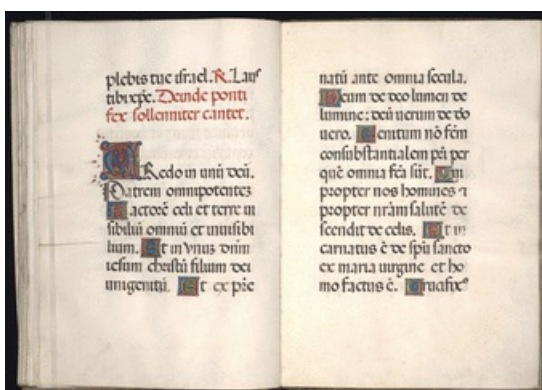 plebis tue israel. R. Laus
tibi xpe. Deinde ponti
fex sollenniter cantet.
CRedo in unū deū.
Patrem omnipotentez
Factorē celi et terre ui
sibiliū omniū et inuisibi
lium. Et in vnus dnm
iesum christū filium dei
unigenitū. Et ex pře
natū ante omnia secula.
Deum de deo lumen de
lumine: deū uerum de dō
uero. Genitum nō fem
consubstantialem při per
quē omnia fca sūt. Qui
propter nos homines ⁊
propter nřam salutē de
scendit de celis. Et in
carnatus ē de spū sancto
ex maria uirgine et ho
mo factus ē. Crucifixꝰ